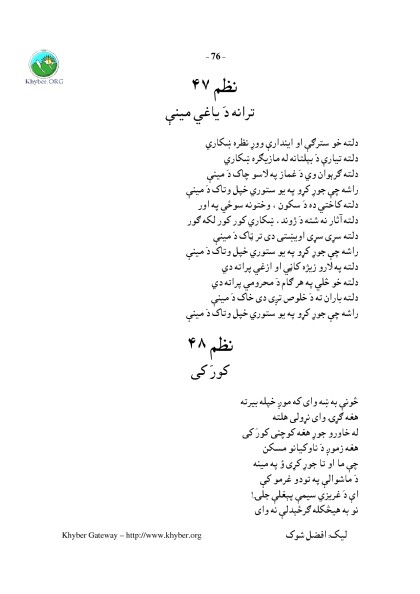 - 76 -
Khyber.ORG
نظم ۴۷
ترانه دَ ياغي مينې
دلته خو سترګې او ايندارې وور نظره ښکاري
دلته تيارې دَ بېلتانه له مازيګره ښکاري
دلته ګرېوان وي دَ غماز په لاسو چاک دَ مينې
راشه چې جوړ کړو په يو ستوري خپل وتاک دَ مينې
دلته کاختي ده دَ سکون ، وختونه سوځي په اور
دلته آثار نه شته دَ ژوند ، ښکاري کور کور لکه ګور
دلته سړی سړی اويښتی دی تر ټاک دَ مينې
راشه چې جوړ کړو په يو ستوري خپل وتاک دَ مينې
دلته په لارو زيژه کاڼي او ازغي پراته دي
دلته خو څلي په هر ګام دَ محرومۍ پراته دي
دلته باران ته دَ خلوص تږی دی خاک دَ مينې
راشه چې جوړ کړو په يو ستوري خپل وتاک دَ مينې
نظم ۴۸
کورَکی
څونې به ښه وای که مور خپله بيرته
هغه ګړۍ وای نړولی هلته
له خاورو جوړ هغه کوچنی کورَکی
هغه زموږ دَ ناوکيانو مسکن
چې ما او تا جوړ کړی ؤ په مينه
دَ ماشوالي په تودو غرمو کې
اې دَ غريزي سيمې پېغلې جلۍ!
نو به هيڅکله ګرځېدلې نه وای
ليک: افضل شوک
Khyber Gateway – http://www.khyber.org